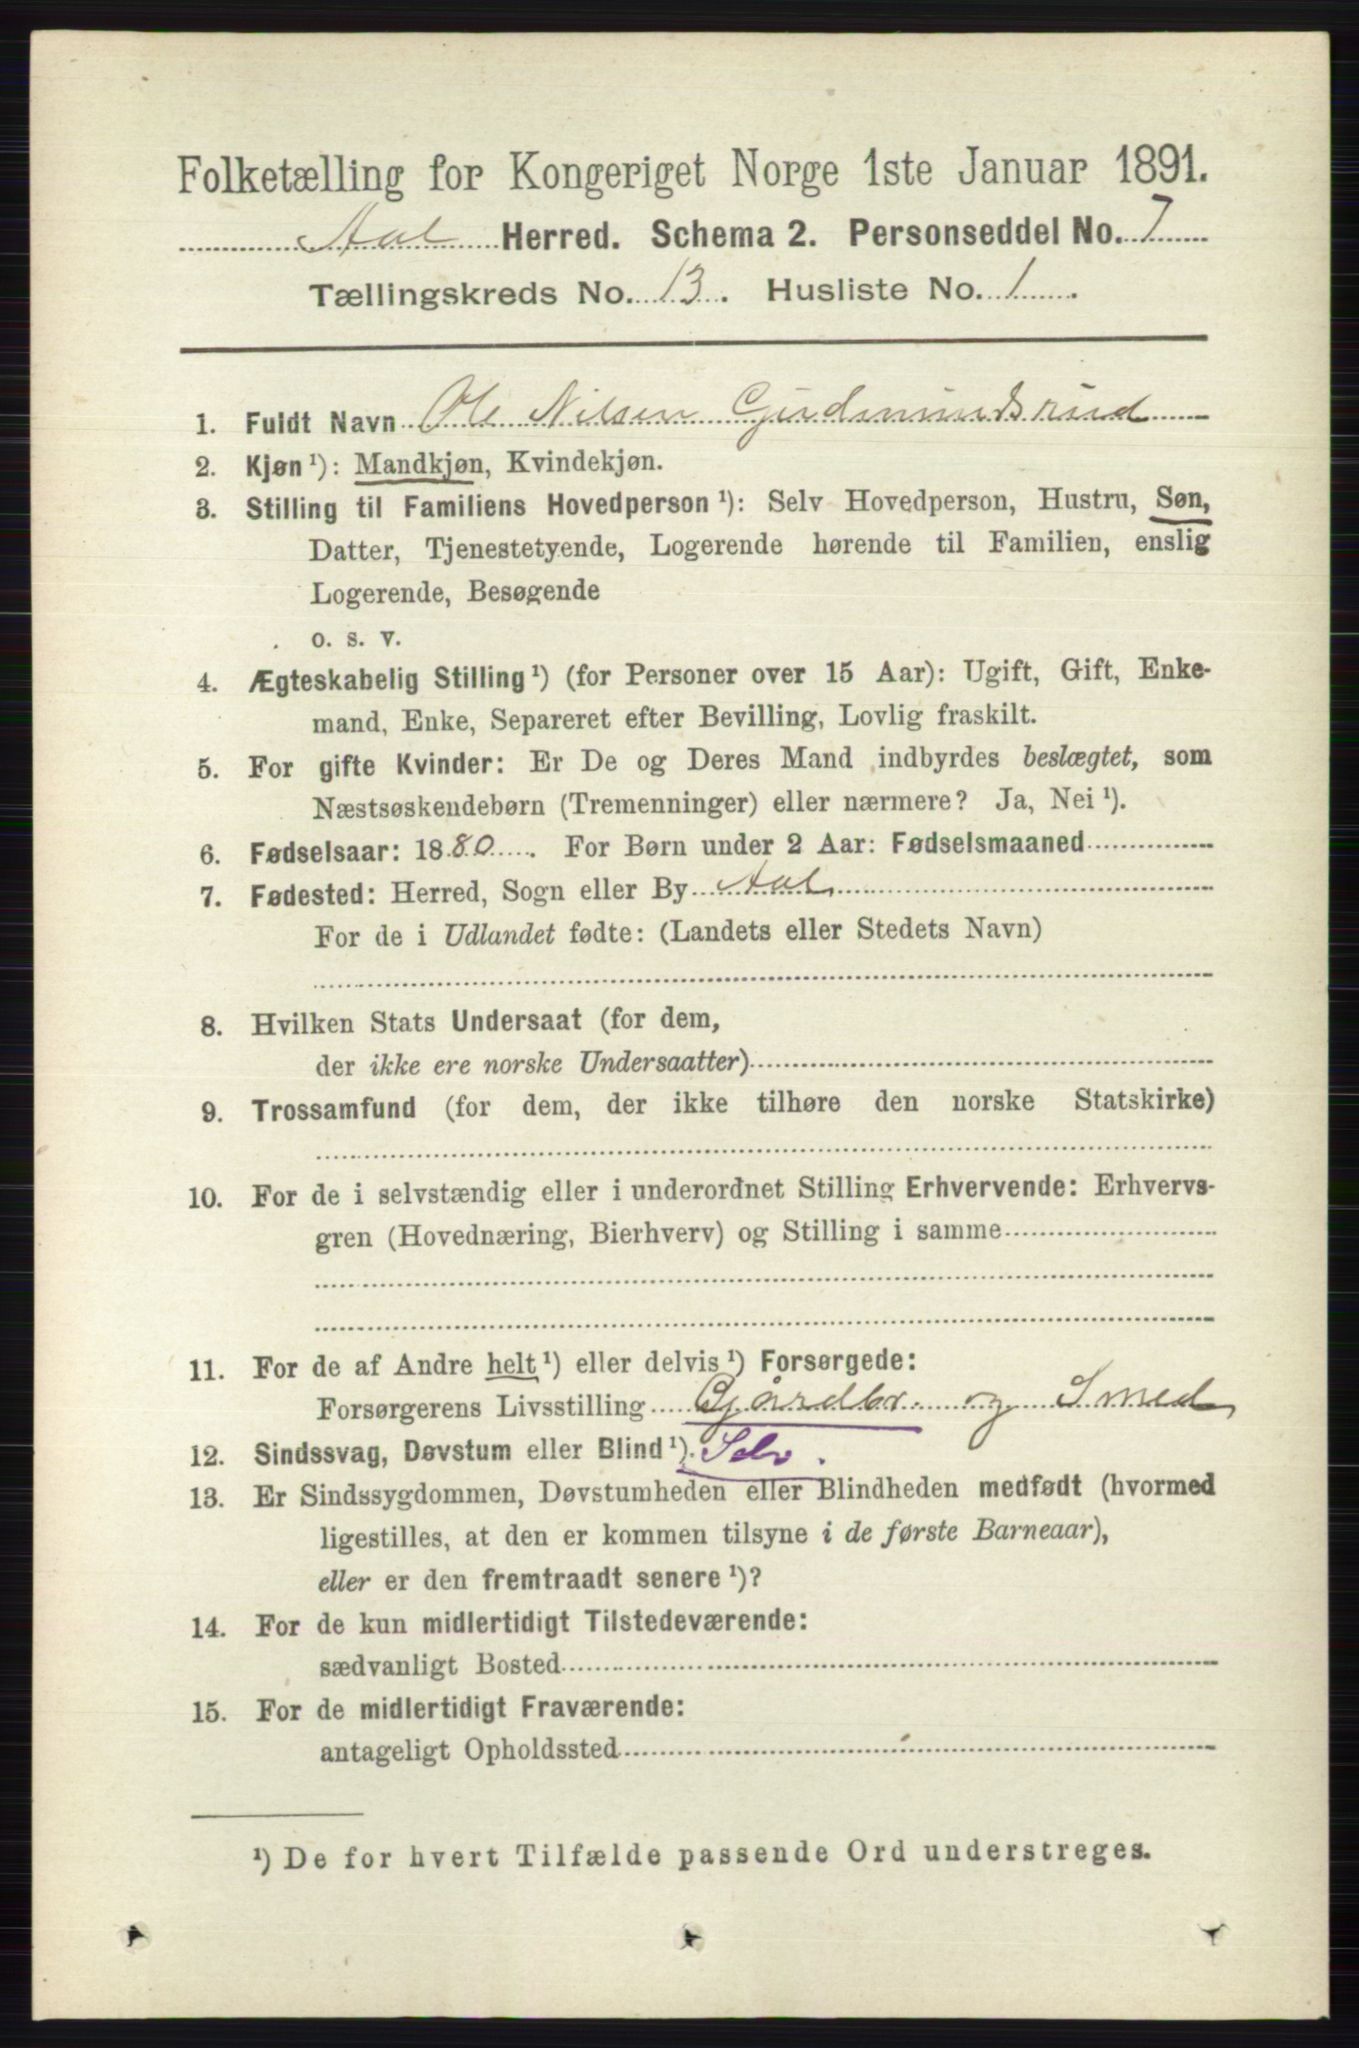 Folketælling for Kongeriget Norge 1ste Januar 1891.
Aal Herred. Schema 2. Personseddel No. 7
Tællingskreds No. 13. Husliste No. 1.
1. Fuldt Navn Ole Nilsen Gudmundsrud
2. Kjøn ¹): Mandkjøn, Kvindekjøn.
3. Stilling til Familiens Hovedperson ¹): Selv Hovedperson, Hustru, Søn,
Datter, Tjenestetyende, Logerende hørende til Familien, enslig
Logerende, Besøgende
o. s. v.
4. Ægteskabelig Stilling ¹) (for Personer over 15 Aar): Ugift, Gift, Enke-
mand, Enke, Separeret efter Bevilling, Lovlig fraskilt.
5. For gifte Kvinder: Er De og Deres Mand indbyrdes beslægtet, som
Næstsøskendebørn (Tremenninger) eller nærmere? Ja, Nei ¹).
6. Fødselsaar: 1880. For Børn under 2 Aar: Fødselsmaaned
7. Fødested: Herred, Sogn eller By Aal
For de i Udlandet fødte: (Landets eller Stedets Navn)
8. Hvilken Stats Undersaat (for dem,
der ikke ere norske Undersaatter)
9. Trossamfund (for dem, der ikke tilhøre den norske Statskirke)
10. For de i selvstændig eller i underordnet Stilling Erhvervende: Erhvervs-
gren (Hovednæring, Bierhverv) og Stilling i samme
11. For de af Andre helt ¹) eller delvis ¹) Forsørgede:
Forsørgerens Livsstilling Gjårdbr. og Smed
12. Sindssvag, Døvstum eller Blind ¹). Selv.
13. Er Sindssygdommen, Døvstumheden eller Blindheden medfødt (hvormed
ligestilles, at den er kommen tilsyne i de første Barneaar),
eller er den fremtraadt senere ¹)?
14. For de kun midlertidigt Tilstedeværende:
sædvanligt Bosted
15. For de midlertidigt Fraværende:
antageligt Opholdssted
¹) De for hvert Tilfælde passende Ord understreges.